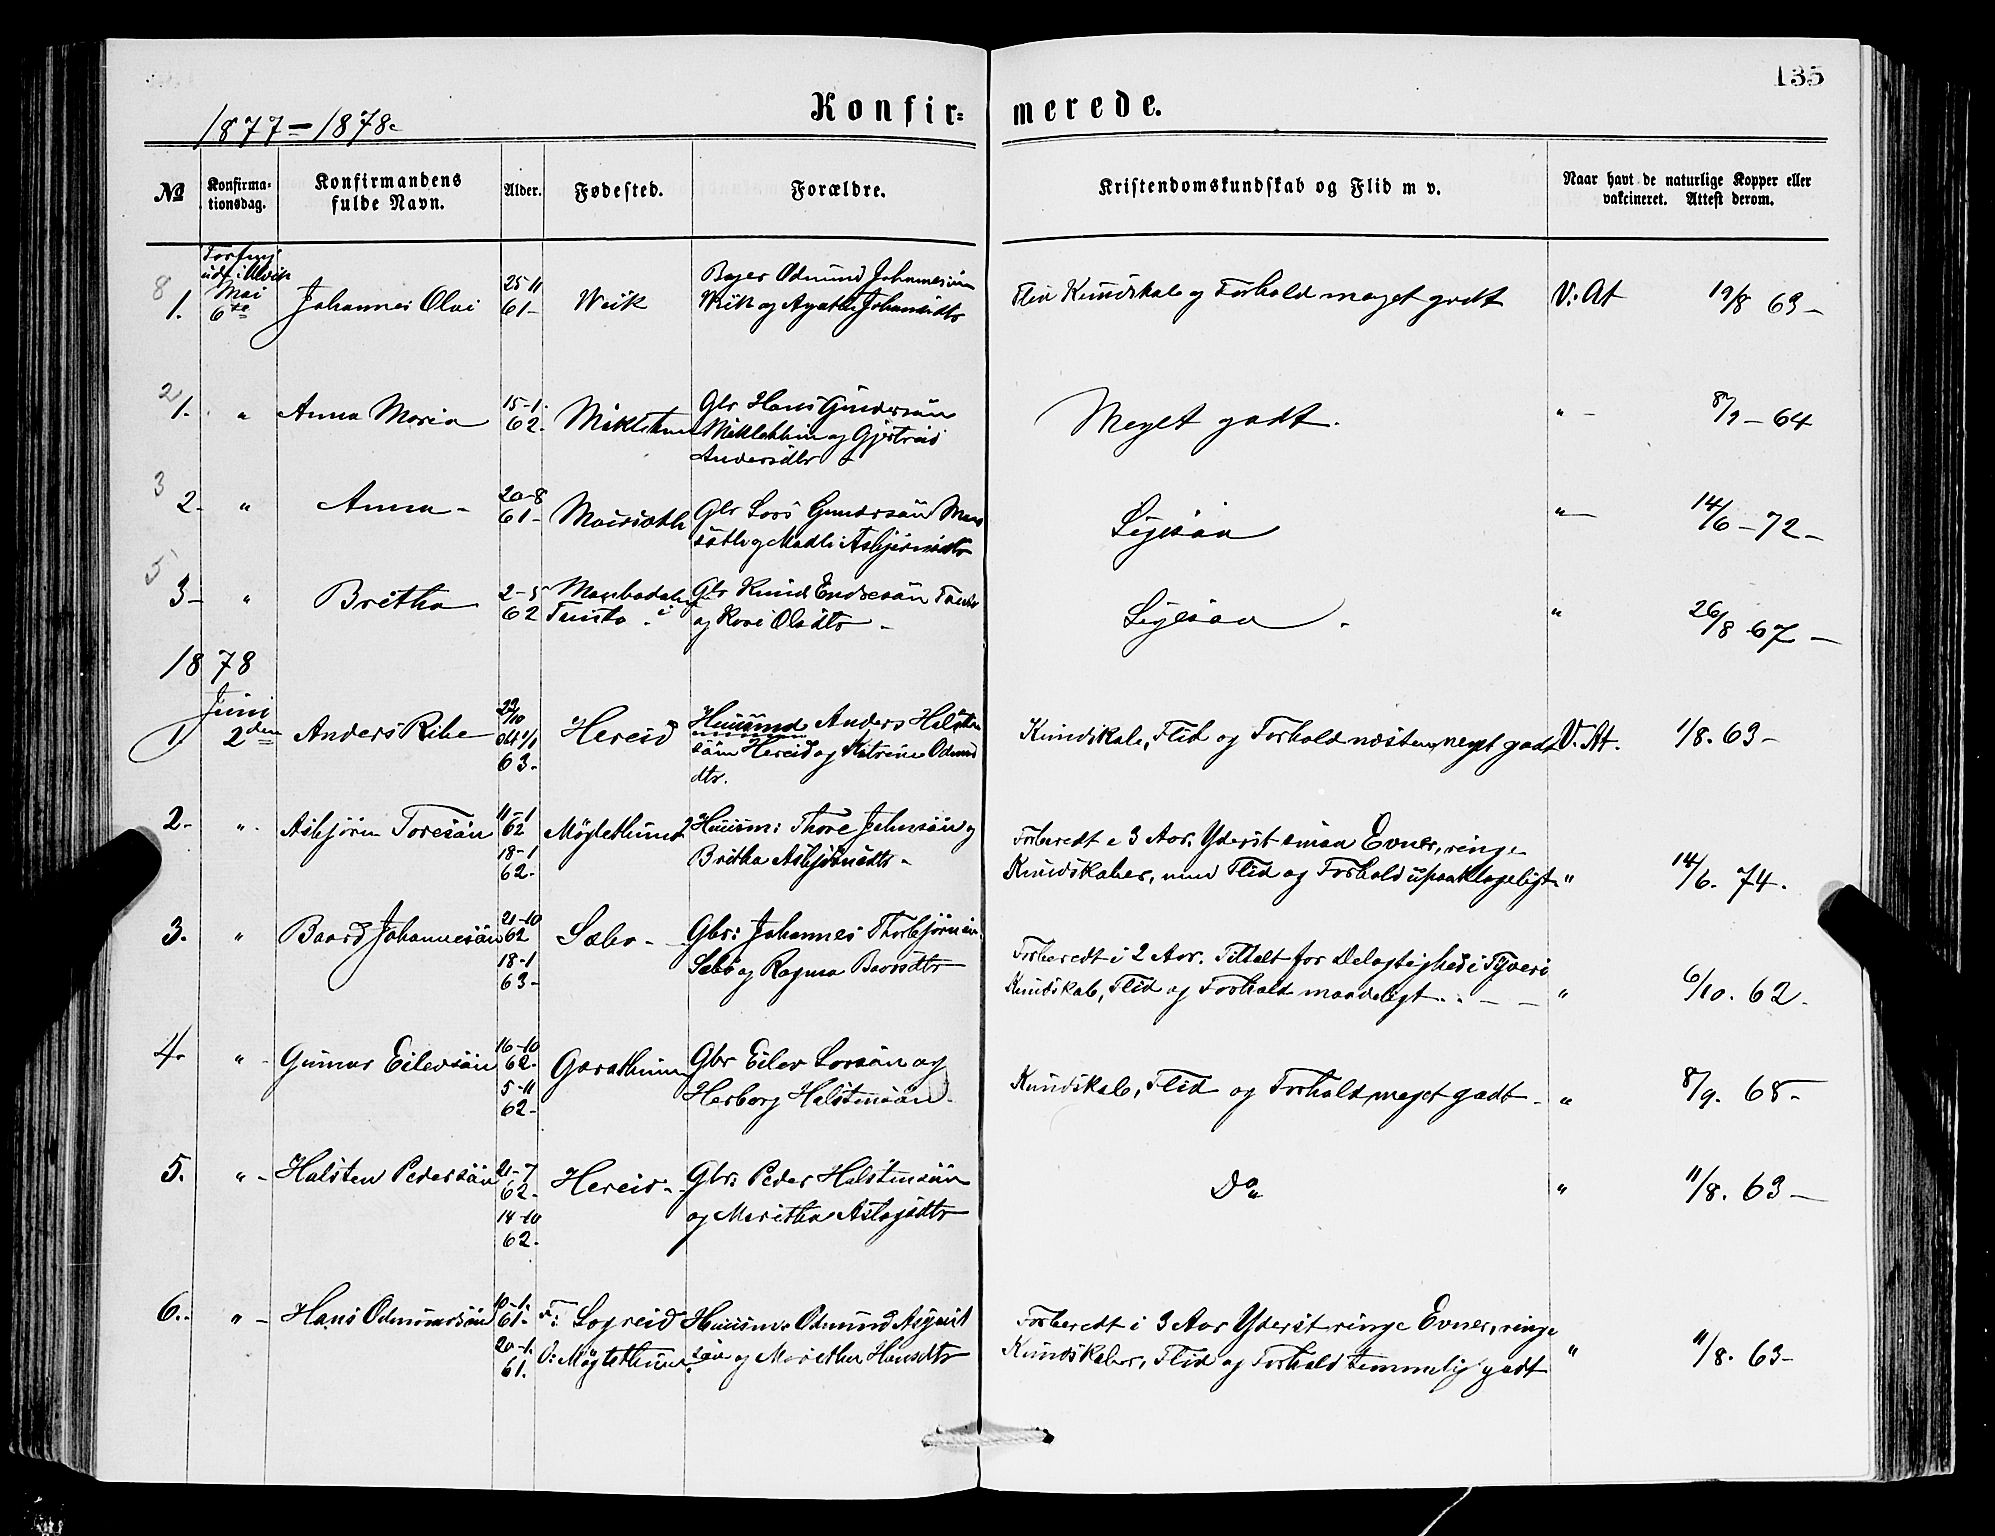 135
1877-1878.
Konfir= merede.
№ Konfirma-tionsdag. Konfirmandens fulde Navn. Alder. Fødested. Forældre. Kristendomskundskab og Flid m v. Naar havt de naturlige Kopper eller vakcineret. Attest derom.
8
1. Mai 6te Johannes Olai 25-11 61- Wiik Odmund Johannesön
Wiik og Agatha Johansdtr
Flid Kundskab og Forhold meget godt V: At 19/8 63-
2
1. " Anna Maria 15-1 62. Gbr Hans Gundersön
og Gjertrud
Andersdtr
Meget godt. " - 8/9-64
3
2- " Anna- 20-8 61- Gbr Lars Gundersön
og Madli Asbjörnsdtr
Ligesaa "- 14/6-72-
5
3- " Britha 2-5 62 Gbr Knud Endresön
og Kari Olsdtr -
Ligesaa. " 26/8 67-
1878
1. Juni 2den Anders Rike 63- Hereid Huusmd Anders Halsten
sön Hereid og Katrine Odmund
dtr.
Kundskab, Flid og Forhold næsten meget godt V. At. 1/8. 63-
2- ". Asbjörn Toresön 11-1 62 18-1 62- Möglethun Huusm: Thore Johnsön og
Britha Asbjörnsdtr-
Forberedt i 3 Aar. Yderst smaa Evner, ringe
Kundskaber, men Flid og Forhold upaaklageligt " 14/6. 74.
3. " Baard Johannesön 21-10 62 18-1 63- Sæbö- Gbr: Johannes Thorbjörnsön
Sæbö og Ragna Baardsdtr
Forberedt i 2 Aar. Tiltalt for Delagtighed i Tyveri
Kundskab, Flid og Forhold maadeligt. - - " 6/10. 62.
4. " - Gunnar Eilevsön 16-10 62- 5-11 62- Garathun Gbr Eilev Larsön og
Herborg Halstensdn.
Kundskab, Flid og Forhold meget godt- " 8/9. 68-
5. " - Halsten Pedersön 21-7 62- 14-10 62. Hereid- Gbr: Peder Halstensön
og Maritha Aslagsdtr
Do " 11/8. 63-
6.. " - Hans Odmundsön 10-1 61- 20-1 61. F: Legreid Huusm: Odmund Asgaut
O: Möglethun sön og Maritha Hansdtr
Forberedt i 3 Aar Yderst ringe Evner, ringe
Kundskaber, Flid og Forhold temmelig godt " 11/8. 63-